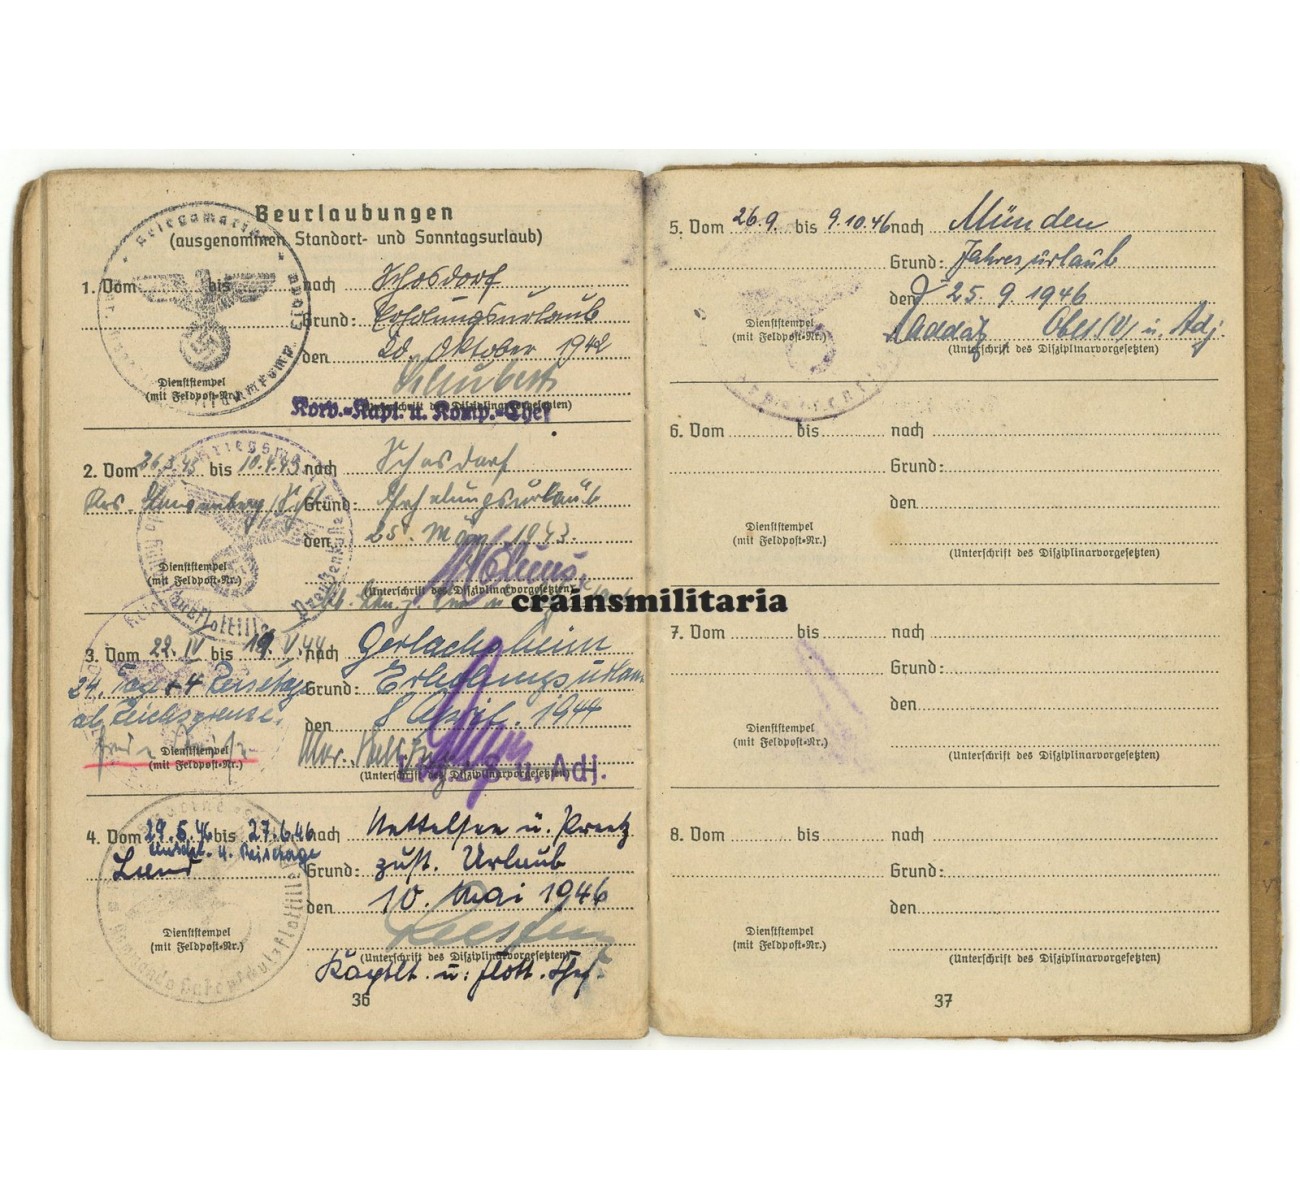 Beurlaubungen
(ausgenommen Standort- und Sonntagsurlaub)
1. Vom bis nach Schosdorf
Grund: Erholungsurlaub
den 20. Oktober 1942
Schubert
Dienststempel
(mit Feldpost-Nr.)
(Unterschrift des Disziplinarvorgesetzten)
Korv.-Kapt. u. Komp.-Chef
2. Vom 26.3.43 bis 10.4.43 nach Schosdorf
Grund: Erholungsurlaub
den 25. März 1943.
Dienststempel
(mit Feldpost-Nr.)
(Unterschrift des Disziplinarvorgesetzten)
crainsmilitaria
3. Vom 22. IV bis 19. V. 44 nach Gerlachsheim
24. Tage + 4 Reisetage Grund: Erholungsurlaub
ab Reichsgrenze. den 8 April. 1944
Dienststempel
(mit Feldpost-Nr.)
(Unterschrift des Disziplinarvorgesetzten)
u. Adj.
4. Vom 29.5.46 bis 27.6.46 nach Nettelsee u. Preetz
4. Reisetage
Grund: zust. Urlaub
den 10. Mai 1946
Dienststempel
(mit Feldpost-Nr.)
(Unterschrift des Disziplinarvorgesetzten)
Kaptlt. u. Flott. Chef.
36
5. Vom 26.9. bis 9.10.46 nach Münden
Grund: Jahresurlaub
den 25. 9. 1946
Oblt. (V) u. Adj.
Dienststempel
(mit Feldpost-Nr.)
(Unterschrift des Disziplinarvorgesetzten)
6. Vom bis nach
Grund:
den
Dienststempel
(mit Feldpost-Nr.)
(Unterschrift des Disziplinarvorgesetzten)
7. Vom bis nach
Grund:
den
Dienststempel
(mit Feldpost-Nr.)
(Unterschrift des Disziplinarvorgesetzten)
8. Vom bis nach
Grund:
den
Dienststempel
(mit Feldpost-Nr.)
(Unterschrift des Disziplinarvorgesetzten)
37